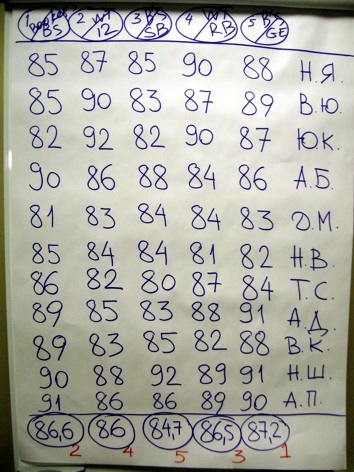 1 BS 2 WT 12 3 BS SB 4 WT RB 5 BS GE
85 87 85 90 88 Н.Я.
85 90 83 87 89 В.Ю.
82 92 82 90 87 Ю.К.
90 86 88 84 86 А.Б.
81 83 84 84 83 Д.М.
85 84 84 81 82 Н.В.
86 82 80 87 84 Т.С.
89 85 83 88 91 А.Д.
89 83 85 82 88 В.К.
90 88 92 89 91 Н.Ш.
91 86 86 89 90 А.П.
86,6 86 84,7 86,5 87,2
2 4 5 3 1